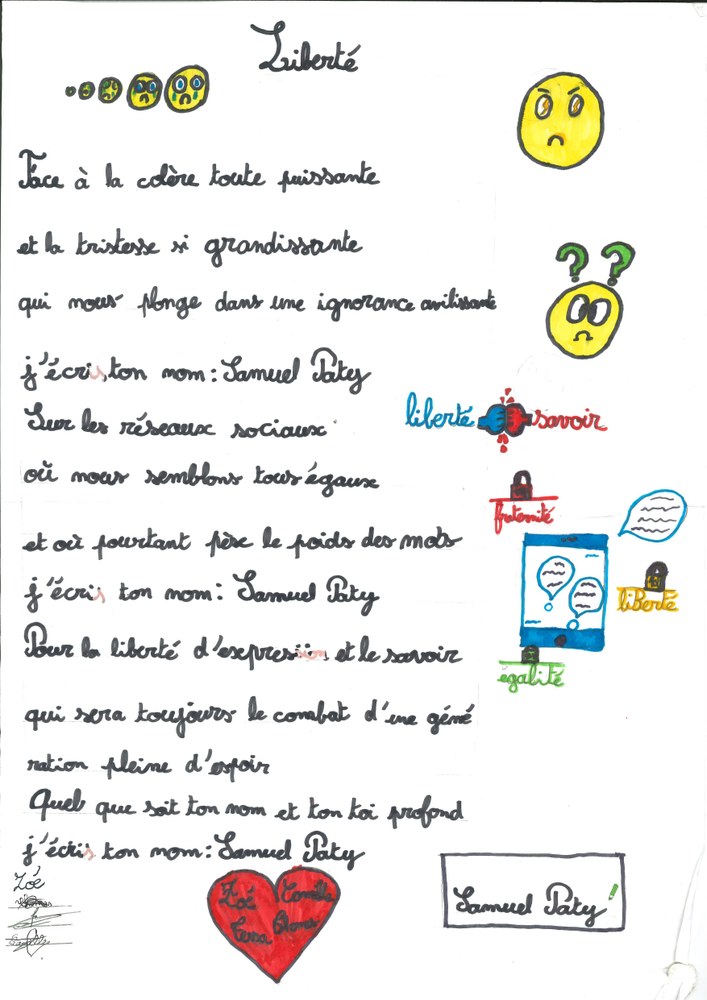 Liberté
Face à la colère toute puissante
et la tristesse si grandissante
? ?
qui nous plonge dans une ignorance avilissante
j'écris ton nom : Samuel Paty
liberté savoir
Sur les réseaux sociaux
où nous semblons tous égaux
fraternité
et où pourtant pèse le poids des mots
j'écris ton nom : Samuel Paty
liBerté
Pour la liberté d'expression et le savoir
égalité
qui sera toujours le combat d'une géné
ration pleine d'espoir
Quel que soit ton nom et ton toi profond
j'écris ton nom : Samuel Paty
Zoé
Zoé Camille
Tessa
Samuel Paty